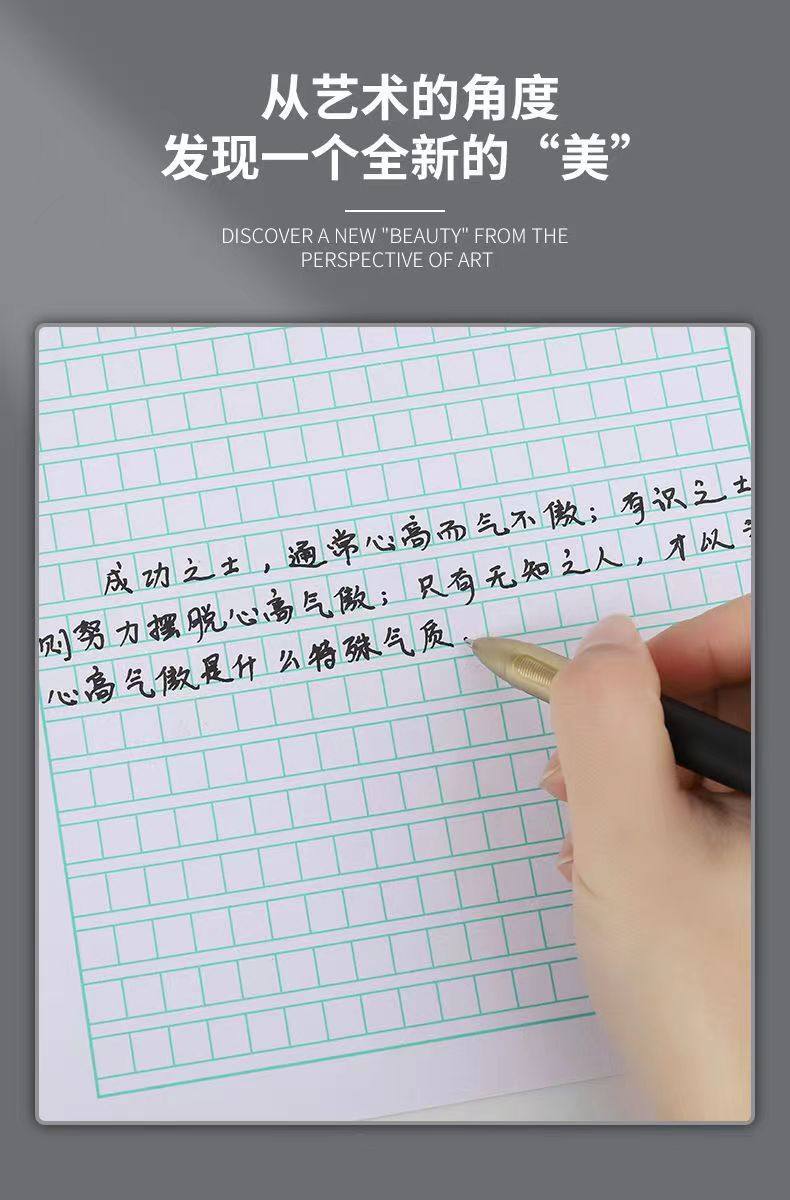 从艺术的角度
发现一个全新的“美”
DISCOVER A NEW "BEAUTY" FROM THE
PERSPECTIVE OF ART
成功之士，通常心高而气不傲；有识之士
则努力摆脱心高气傲；只有无知之人，才以
心高气傲是什么特殊气质.